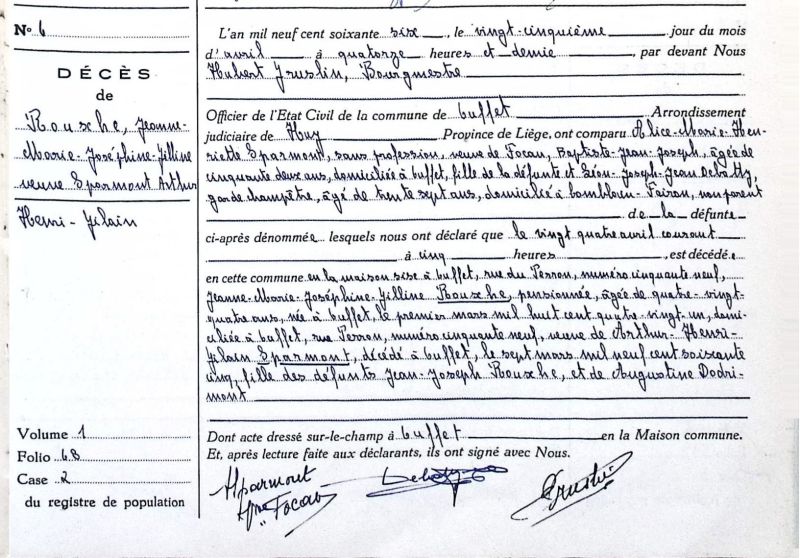 N° 6
DÉCÈS
de
Rouxhe, Jeanne-
Marie-Joséphine-Jilline
veuve Sparmont Arthur
Henri-Jilain
Volume 1
Folio 68
Case 2
du registre de population
L'an mil neuf cent soixante six, le vingt-cinquième jour du mois
d'avril à quatorze heures et demie, par devant Nous
Hubert Jruslin, Bourgmestre
Officier de l'Etat Civil de la commune de Cuffet Arrondissement
judiciaire de Huy Province de Liège, ont comparu Alice-Marie-Hen-
riette Sparmont, sans profession, veuve de Focau, Baptiste-Jean-Joseph, âgée de
cinquante deux ans, domiciliée à Cuffet, fille de la défunte et Léon-Joseph-Jean Debatty,
garde champêtre, âgé de trente sept ans, domicilié à Comblain-Fairon, non parent
de la défunte
ci-après dénommée lesquels nous ont déclaré que le vingt quatre avril courant
à cinq heures, est décédée
en cette commune en la maison sise à Cuffet, rue du Perron, numéro cinquante neuf,
Jeanne-Marie-Joséphine-Jilline Rouxhe, pensionnée, âgée de quatre-vingt-
quatre ans, née à Cuffet, le premier mars mil huit cent quatre-vingt-un, domi-
ciliée à Cuffet, rue Perron, numéro cinquante neuf, veuve de Arthur-Henri-
Jilain Sparmont, décédé à Cuffet, le sept mars mil neuf cent soixante
cinq, fille des défunts Jean-Joseph Rouxhe, et de Augustine Dodri-
mont
Dont acte dressé sur-le-champ à Cuffet en la Maison commune.
Et, après lecture faite aux déclarants, ils ont signé avec Nous.
ASparmont
Focau